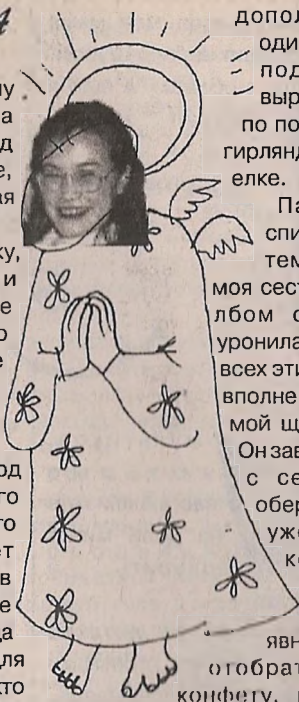 му
а
д
е,
ая
ку,
и
е
о
е
рд
го
го
ет
в
е
да
для
кто
допол
один
под
выр
по по
гирлянд
елке.
Па
спи
тем
моя сест
лбом с
уронила
всех эти
вполне
мой щ
Он зав
с се
обер
уже
ко
явн
отобрат
конфету,